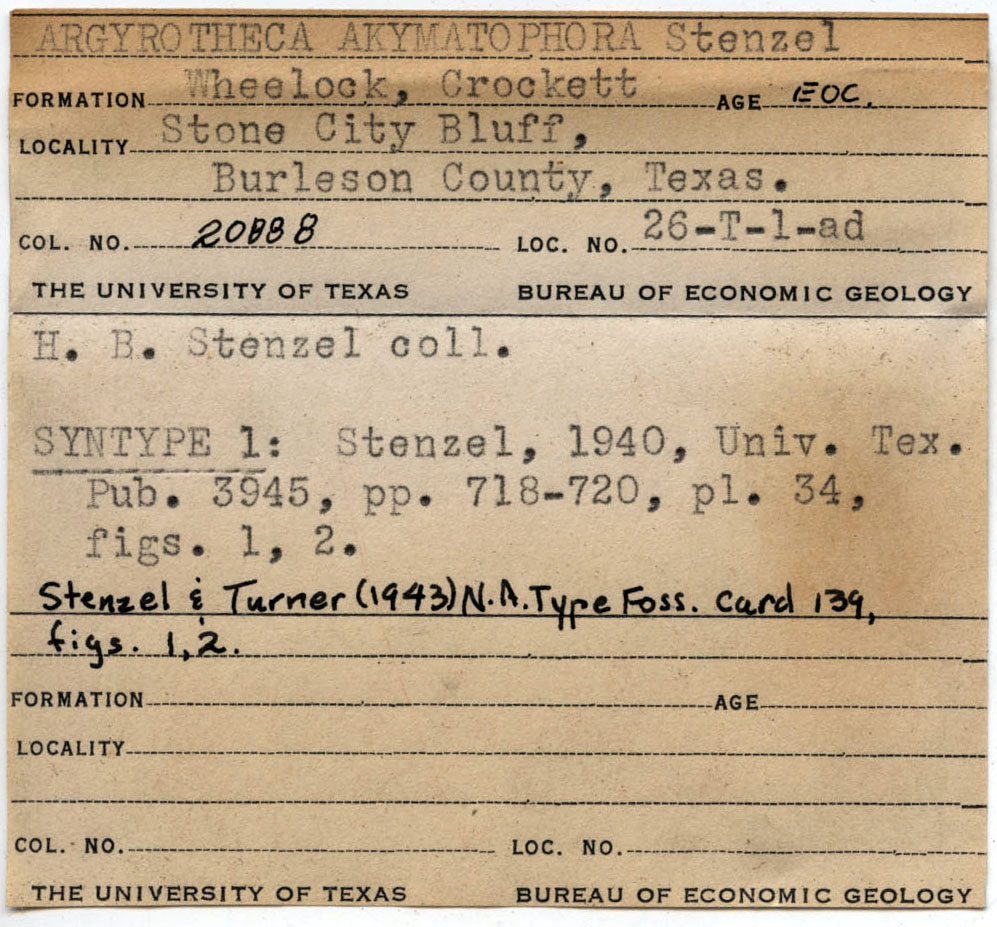 ARGYROTHECA AKYMATOPHORA Stenzel
FORMATION Wheelock, Crockett AGE EOC.
LOCALITY Stone City Bluff,
Burleson County, Texas.
COL. NO. 20888 LOC. NO. 26-T-1-ad
THE UNIVERSITY OF TEXAS BUREAU OF ECONOMIC GEOLOGY
H. B. Stenzel coll.
SYNTYPE 1: Stenzel, 1940, Univ. Tex.
Pub. 3945, pp. 718-720, pl. 34,
figs. 1, 2.
Stenzel & Turner (1943) N.A. Type Foss. Card 139,
figs. 1, 2.
FORMATION AGE
LOCALITY
COL. NO. LOC. NO.
THE UNIVERSITY OF TEXAS BUREAU OF ECONOMIC GEOLOGY